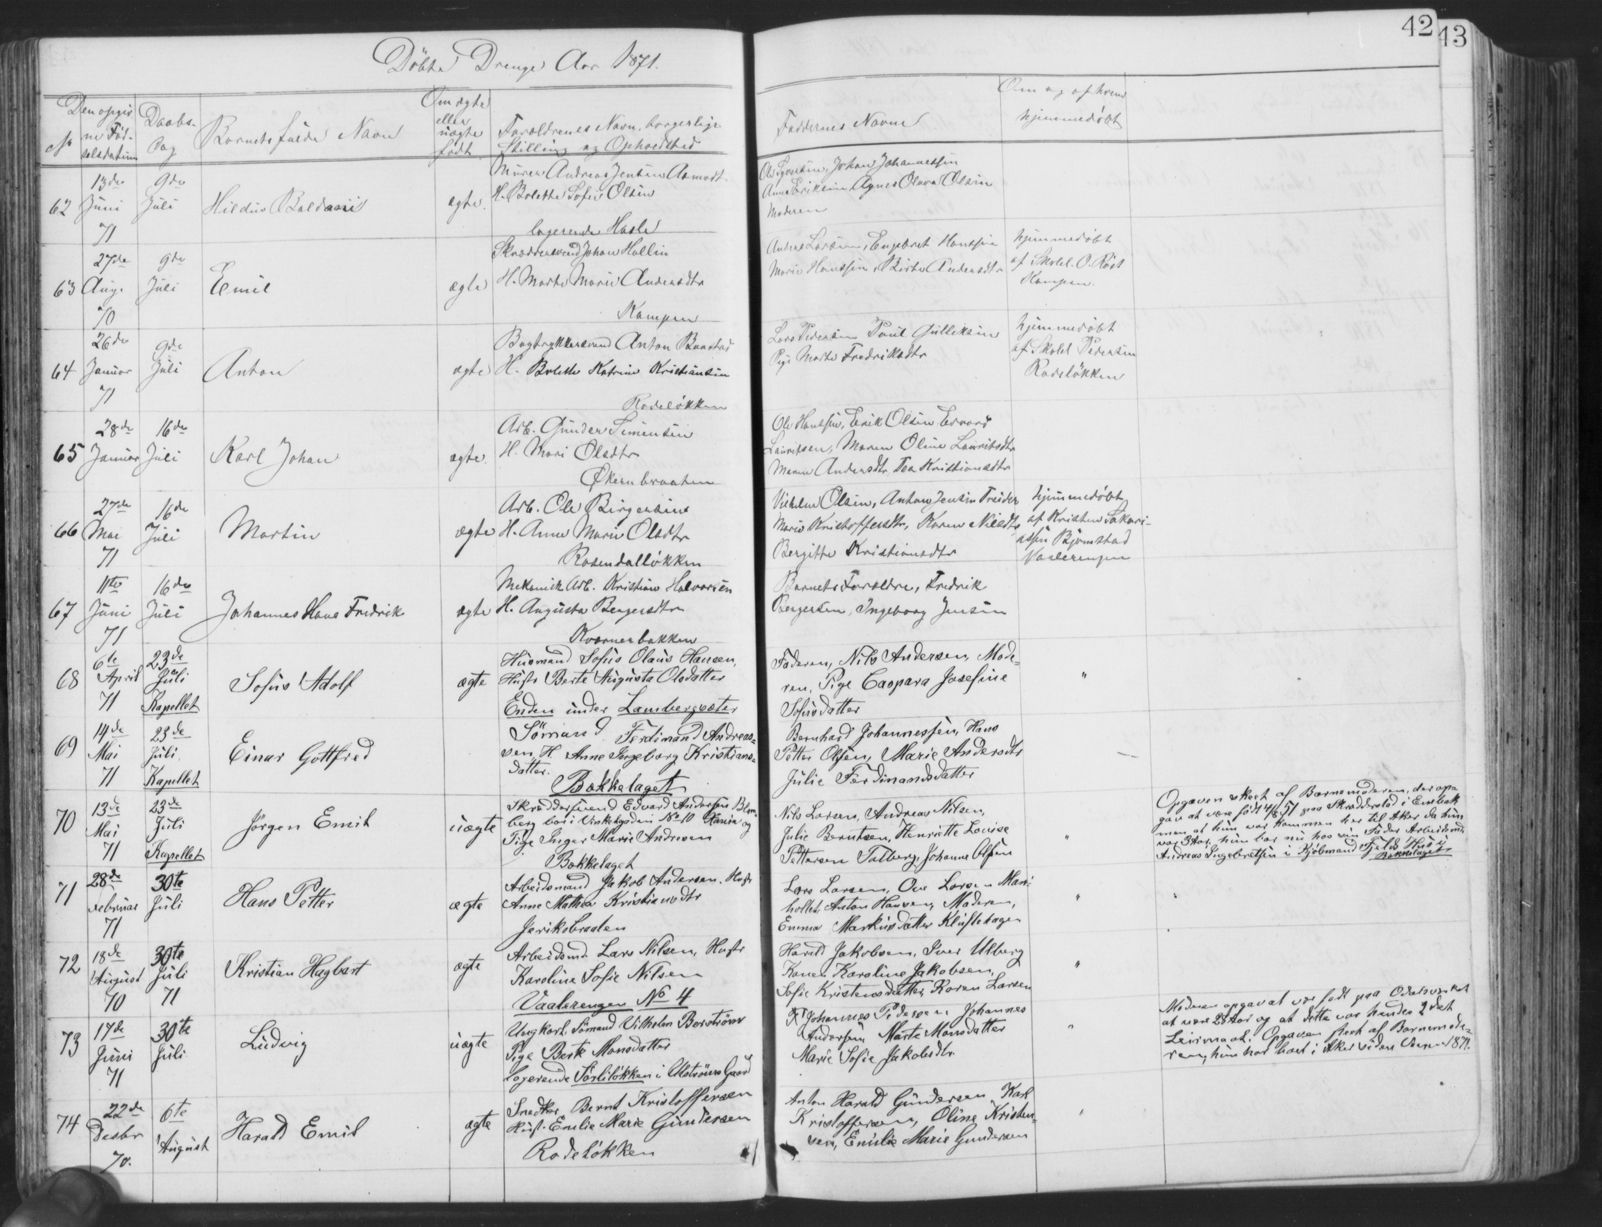 42
43
Döbte Drenge Aar 1871.
No
Den opgivne Födselsdatum
Daabs Dag
Barnets fulde Navn
Om ægte eller uægte födt
Forældrenes Navn, borgerlige
Stilling og Opholdsted
Faddernes Navne
Om og af hvem
hjemmedöbt
62
13de Juni 71
9de Juli
Hildus Baldevin
ægte
Murer Andreas Jensen Aamodt
H. Bolette Sofie Olsen
logerende Hasle
Johan Johannessen
Anna Eriksen, Agnes Olava Olsen
Moderen
63
27de Aug. 70
9de Juli
Emil
ægte
Skræddersvend Johan Hellin
H. Marte Marie Andersdtr
Kampen
Anders Larsen, Engebret Hansen
Marie Hansen, Berte Andersdtr
hjemmedöbt
af Skolel. O. Röst
Kampen
64
26de Januar 71
9de Juli
Anton
ægte
Bogtrykkersvend Anton Baastad
H. Bolette Katrine Kristiansen
Rodelökken
Lars Pedersen Paul Gulleksen
Pige Marte Fredriksdtr
hjemmedöbt
af Skolel. Pedersen
Rodelökken
65
28de Januar
16de Juli
Karl Johan
ægte
Arb. Gunder Simensen
H. Mari Olsdtr
Økern braaten
Ole Hansen, Erik Olsen
Lauritsen, Maren Oline Lauritsdtr
Maren Andersdtr Tea Kristiansdtr
66
27de Mai 71
16de Juli
Martin
ægte
Arb. Ole Birgersen
H. Anne Marie Olsdtr
Rosendallökken
Vilhelm Olsen, Anton Jensen
Marie Kristoffersdtr, Karen Nilsdtr
Bergitte Kristiansdtr
hjemmedöbt
af Kristen Sakari-
assen Björnstad
Vaalerengen
67
11te Juni 71
16de Juli
Johannes Hans Fredrik
ægte
Mekanisk Arb. Kristian Halvorsen
H. Augusta Bengersdtr
Kværnerbakken
Barnets Forældre, Fredrik
Bengersen, Ingeborg Jensen
68
6te April 71
23de Juli Kapellet
Sofus Adolf
ægte
Husmand Sofus Olaus Hansen,
Hustr Berte Augusta Olsdatter
Enden under Lambersæter
Faderen, Nils Andersen, Mode-
ren, Pige Caspara Josefine
Sofusdatter
"
69
14de Mai 71
23de Juli Kapellet
Einar Gottfred
Sömand Ferdinand Andreas-
sen, H. Anne Ingeborg Kristians-
datter.
Bækkelaget
Bernhard Johannessen, Hans
Petter Olsen, Marie Andersdtr
Julie Ferdinandsdatter
—
70
13de Mai 71
23de Juli Kapellet
Jörgen Emil
uægte
Skræddersvend Edvard Andersen Blom-
berg bor i Vinkelgaden No 10 Xania og
Pige Inger Marie Andresen
Bækkelaget
Nils Larsen, Andreas Nilsen,
Julie Berntsen, Henriette Louise
Pettersen Talberg, Johanne Olsen
"
Opgaven skreft af Barnemoderen, der opa-
gav at være födt 4/8 51 paa Skrædderstad i Enebak
men at hun var kommen her til Aker da hun
var 3 Aar, hun bor nu hos sin Fader Arbeidsmd.
Andreas Ingebretsen i Kjöbmand Fjelds Huus
Bækkelaget
71
28de Februar 71
30te Juli
Hans Petter
ægte
Arbeidsmand Jakob Andersen. Hustr
Anne Mathea Kristiansdtr
Jerikobraaten
Lars Larsen, Ove Larsen Mari-
holtet, Anton Hansen, Moderen,
Emma Markusdatter Klöftehagen
"
72
18de August 70
30te Juli 71
Kristian Hagbart
ægte
Arbeidsmd Lars Nilsen, Hustr
Karoline Sofie Nilsen
Vaalerengen No 4
Harald Jakobsen, Iver Utberg
Konen Karoline Jakobsen,
Sofie Kristensdatter, Karen Larsen
"
73
17de Juni 71
30te Juli
Ludvig
uægte
Ungkarl Sömand Vilhelm Berström
Pige Berte Monsdatter
logerende Sörlilökken i Almströms Gaard
Johannes Pedersen Johannes
Andersen Marte Monsdatter
Marie Sofie Jakobsdtr
"
Moderen opgav at var födt paa Odalsverket
at være 28 Aar og at dette var hendes 2det
Leiermaal. Opgaven skreft af Barnemode-
ren, hun har boet i Aker siden 1871.
74
22de Desbr 70.
6te August
Harald Emil
ægte
Snedker Bernt Kristoffersen
Hust. Emilie Marie Gundersen
Rodelökken
Anton Harald Gundersen Karl
Kristoffersen, Oline Kristen-
sen, Emilie Marie Gundersen
"